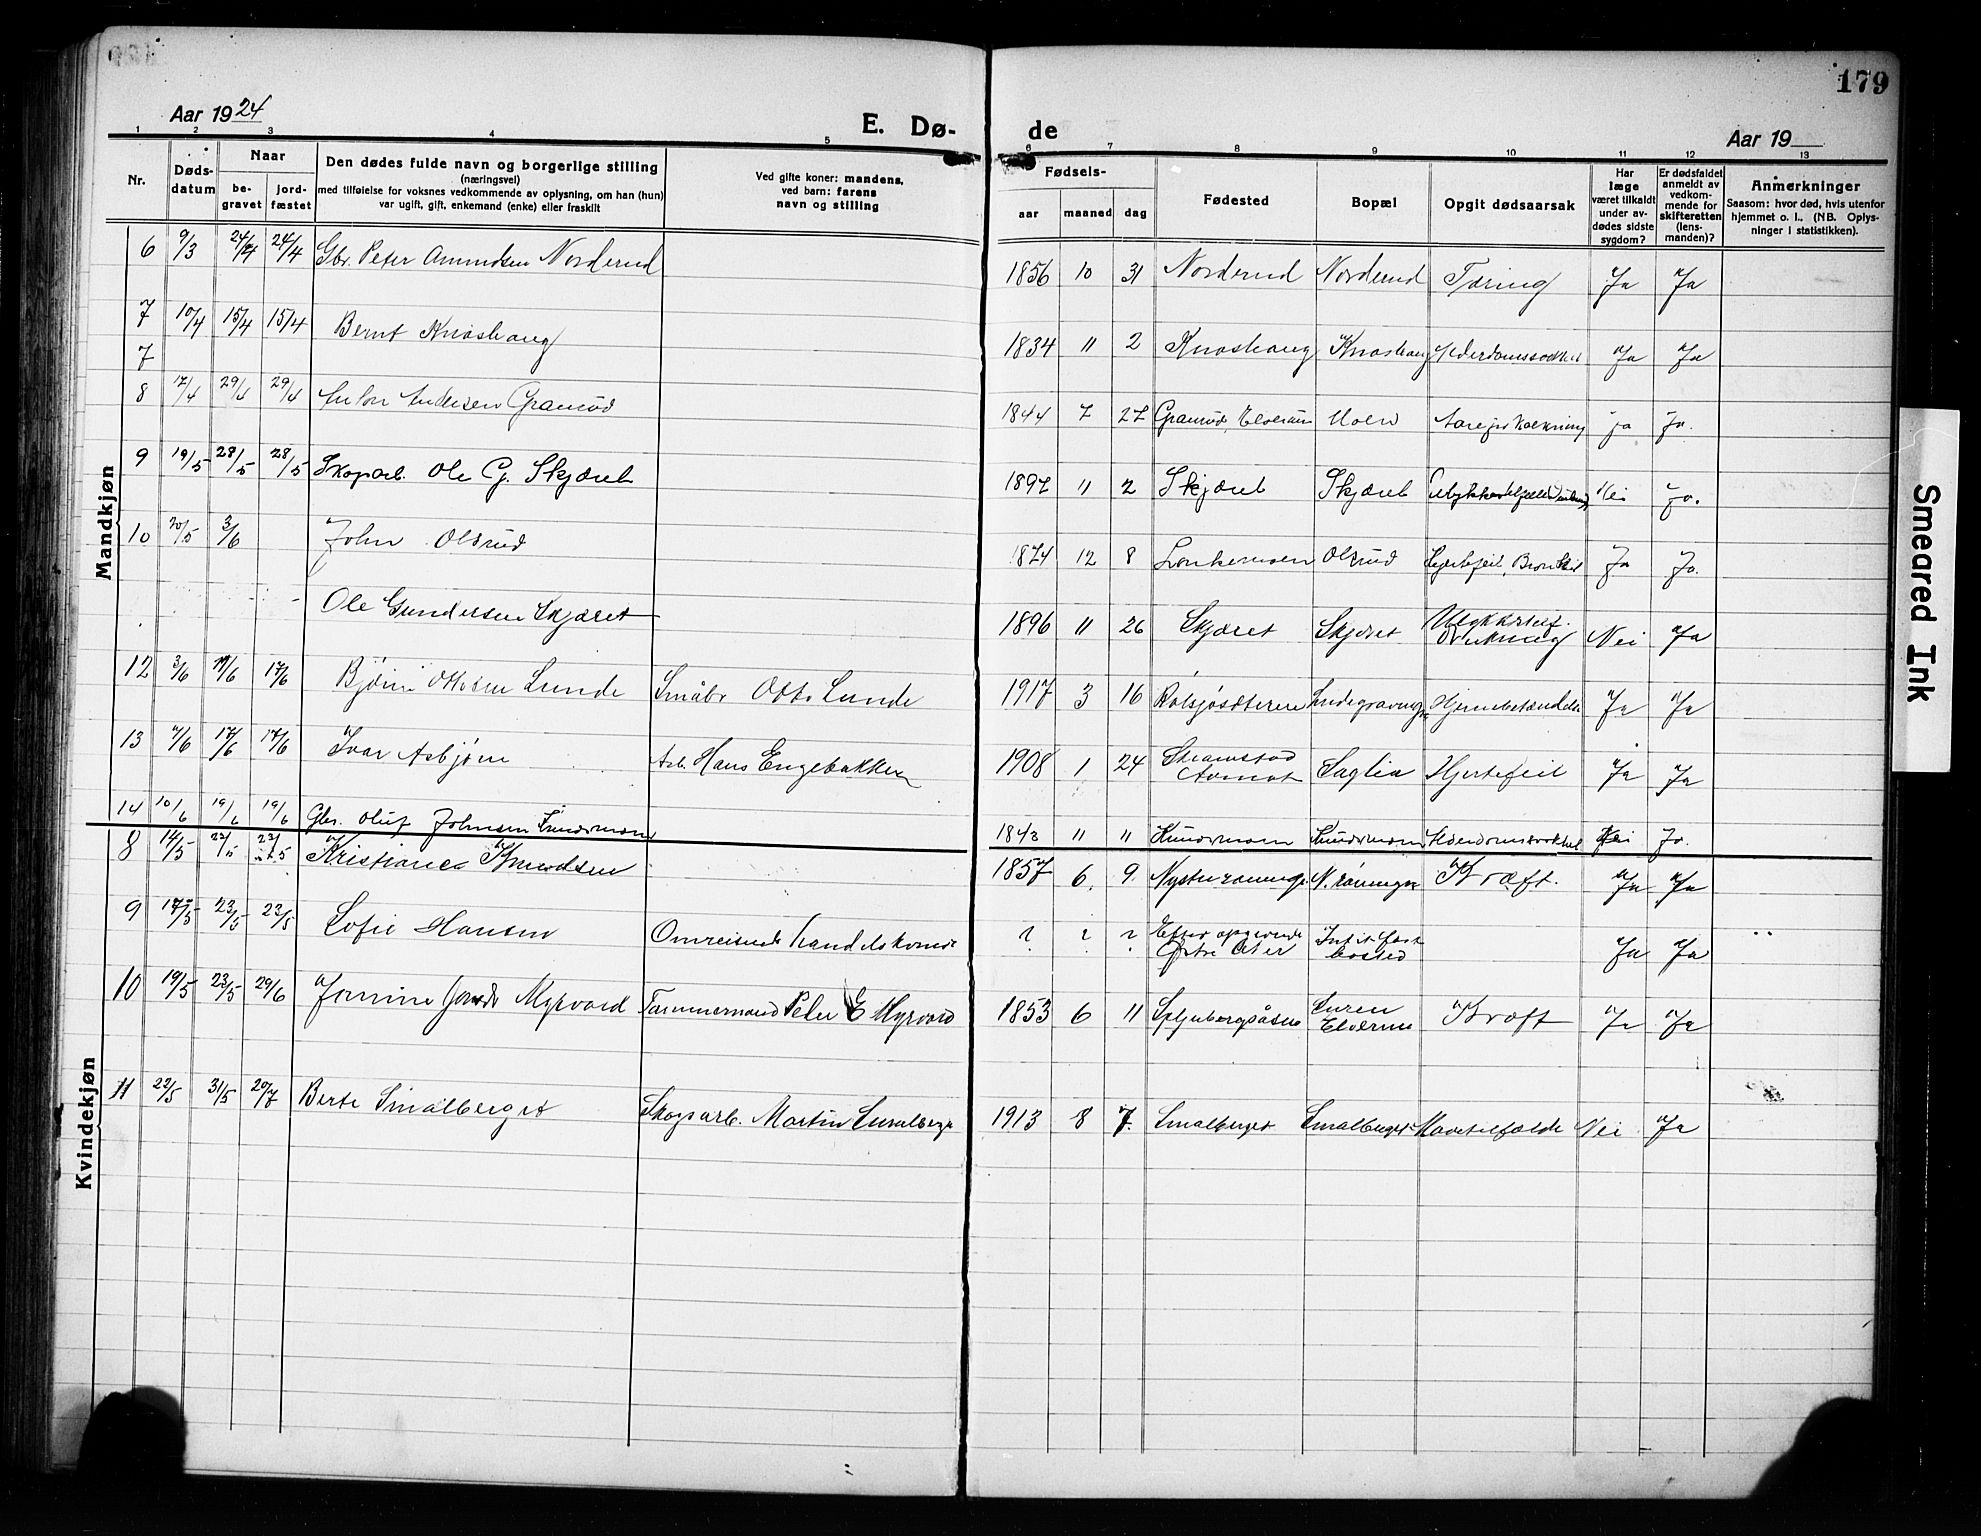 179
Aar 1924
E. Dø-
de
Aar 19
1 2 3 4 5 6 7 8 9 10 11 12 13
Nr.
Døds-
datum
Naar
be-
gravet
jord-
fæstet
Den dødes fulde navn og borgerlige stilling
(næringsvei)
med tilføielse for voksnes vedkommende av oplysning, om han (hun)
var ugift, gift, enkemand (enke) eller fraskilt
Ved gifte koner: mandens,
ved barn: farens
navn og stilling
Fødsels-
aar maaned dag
Fødested
Bopæl
Opgit dødsaarsak
Har
læge
været tilkaldt
under av-
dødes sidste
sygdom?
Er dødsfaldet
anmeldt av
vedkom-
mende for
skifteretten
(lens-
manden)?
Anmerkninger
Saasom: hvor død, hvis utenfor
hjemmet o. l.. (NB. Oplys-
ninger i statistikken).
Mandkjøn
6 9/3 24/4 24/4 Gbr. Peter Amundsen Norderud 1856 10 31 Norderud Norderud Tæring Ja Ja
7 10/4 15/4 15/4 Bernt Knashaug 1834 11 2 Knashaug Knashaug Ja Ja
7
8 17/4 29/4 29/4 Anton Andersen Gramrød 1844 7 27 Gramrød, Elverum Moen ja Ja.
9 19/5 28/5 28/5 Skogarb. Ole G. Skjæret 1897 11 2 Skjæret Skjæret Nei Ja.
10 20/5 3/6 John Olsrud 1874 12 8 Olsrud Hjertefeil, Ja Ja.
Ole Gundersen Skjæret 1896 11 26 Skjæret Skjæret Ulykkestilf. Drukning Nei Ja
12 3/6 17/6 Bjørn Ottesen Lunde Småbr Otto Lunde 1917 3 16 Hjernebetændelse Ja Ja
13 4/6 17/6 17/6 Ivar Asbjørn Arb. Hans Engebakken 1908 1 24 Saglia Hjertefeil Ja Ja
14 10/6 19/6 19/6 Gbr. Oluf Johnsen 1843 11 11 Alderdomssvakhet Nei Ja.
Kvindekjøn
8 14/5 Kristiane Knudsen 1857 6. 9. Kræft. Ja Ja
9 17/5 23/5 23/5 Sofie Hansen Omreisende handelskvinde ? ? ? Efter opgivende Østre Æter Intet fast bosted Ja Ja
10 19/5 23/5 29/6 Myrvord Tømmermand Peter E Myrvord 1853 6 11 Elverum Kræft Ja Ja
11 22/5 31/5 20/7 Berte Smalberget Skogsarb. Martin Smalberget 1913 8 7. Smalberget Smalberget Nei Ja
Smeared Ink